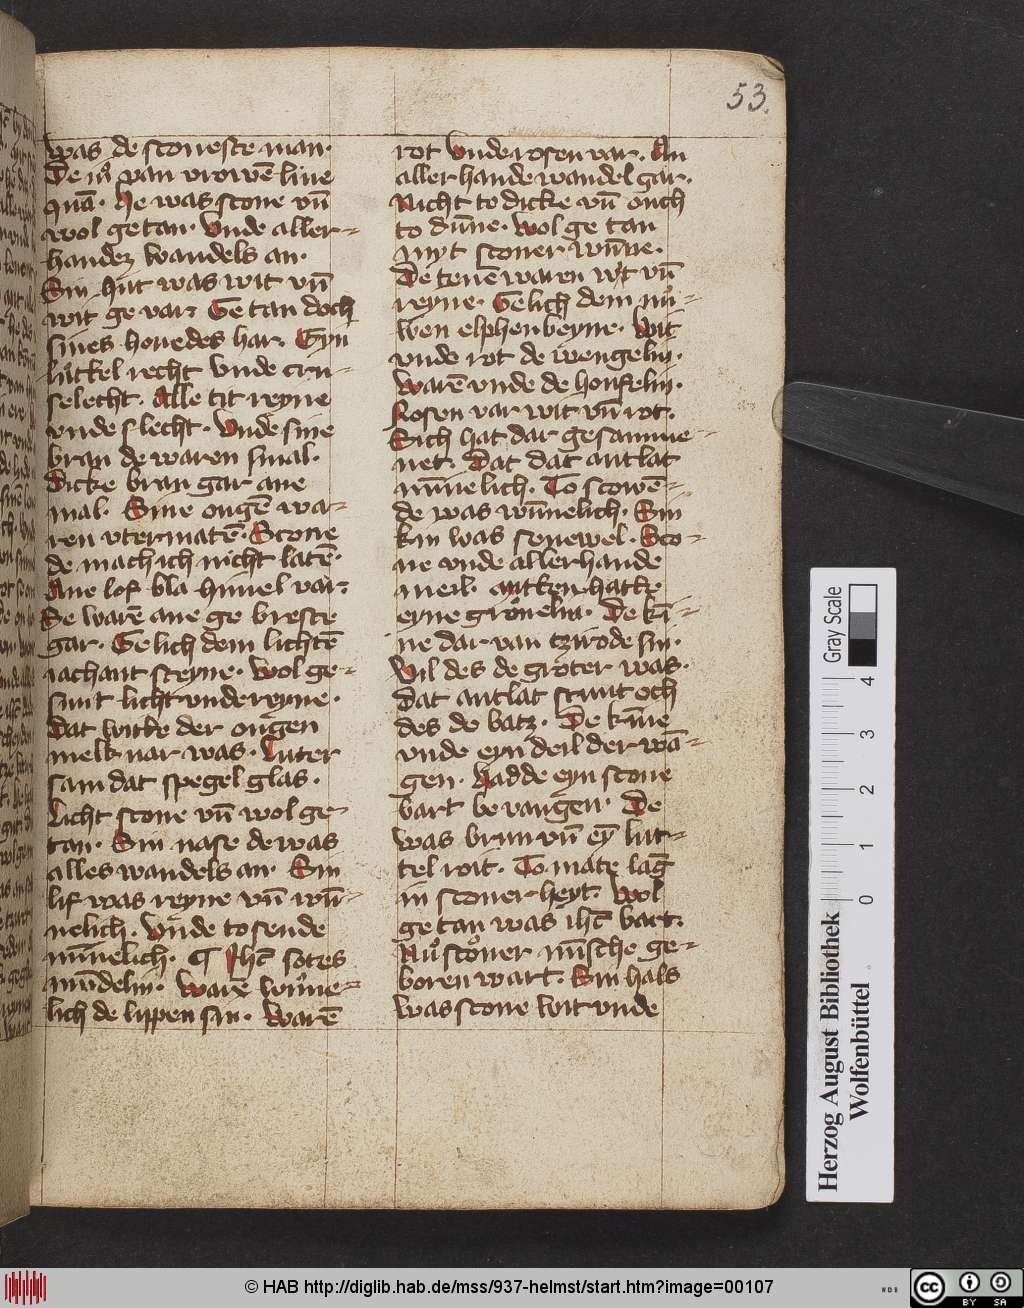 53.
was de sconeste man·
De ia van vrowē liue
quā· He was scone vn̄
wol getan· Vnde aller-
handez wandels an·
Sin hut was wit vn̄
wit ge var· Getan doch
sines houedes har· Eyn
luttel recht vnde cru-
selecht· Alle tit reyne
vnde slecht· Vnde sine
bran de waren smal·
Dicke bran gar ane
mal· Sine ougē wa-
ren vtermatē· Scone
de mach ich nicht latē·
Ane lof bla himel var·
Se warē ane ge breste
gar· Gelich dem lichtē
iachant steyne· Wol ge-
sunt licht vnde reyne·
Dat witte der ougen
melk uar was· Luter
sam dat spegel glas·
Licht scone vn̄ wol ge-
tan· Sin nase de was
alles wandels an· Sin
lif was reyne vn̄ wū-
nelich· Vnde to sende
mīnelich· ¶ Ihc̄ sotes
mūdelin· Warē wūne-
lich de lippen sin· Warē
rot vnde rosen var· An
aller hande wandel gar·
Nicht to dicke vn̄ ouch
to dūne· Wol ge tan
myt sconer wūne·
De tenē waren wit vn̄
reyne· Gelich dem nu-
wen elphenbeyne· Wit
vnde rot de wengelin·
Warē vnde de houfelin·
Rosen var wit vn̄ rot·
Sich hat dar gesamme-
net· Dat dat antlat
mīnelich· To scowē-
de was wūnelich· Sin
kin was senewel· Sco-
ne vnde allerhande
meil· mitten hatte
eyne grůnelin· De kī-
ne dar van tzirode sin·
Vil des de groter was·
dat antlat stunt och
des de batz· De kīne
vnde eyn deil der wā-
gen· Hadde eyn scone
bart be vangen· De
was brun vn̄ eȳ lut-
tel roit· To mate lāg
in sconer heyt· Wol
ge tan was ihc̄ bart·
Nu sconer mīsche ge-
boren wart· Sin hals
was scone wit vnde
Gray Scale
0 1 2 3 4
Herzog August Bibliothek
Wolfenbüttel
© HAB http://diglib.hab.de/mss/937-helmst/start.htm?image=00107
WDB
cc BY SA